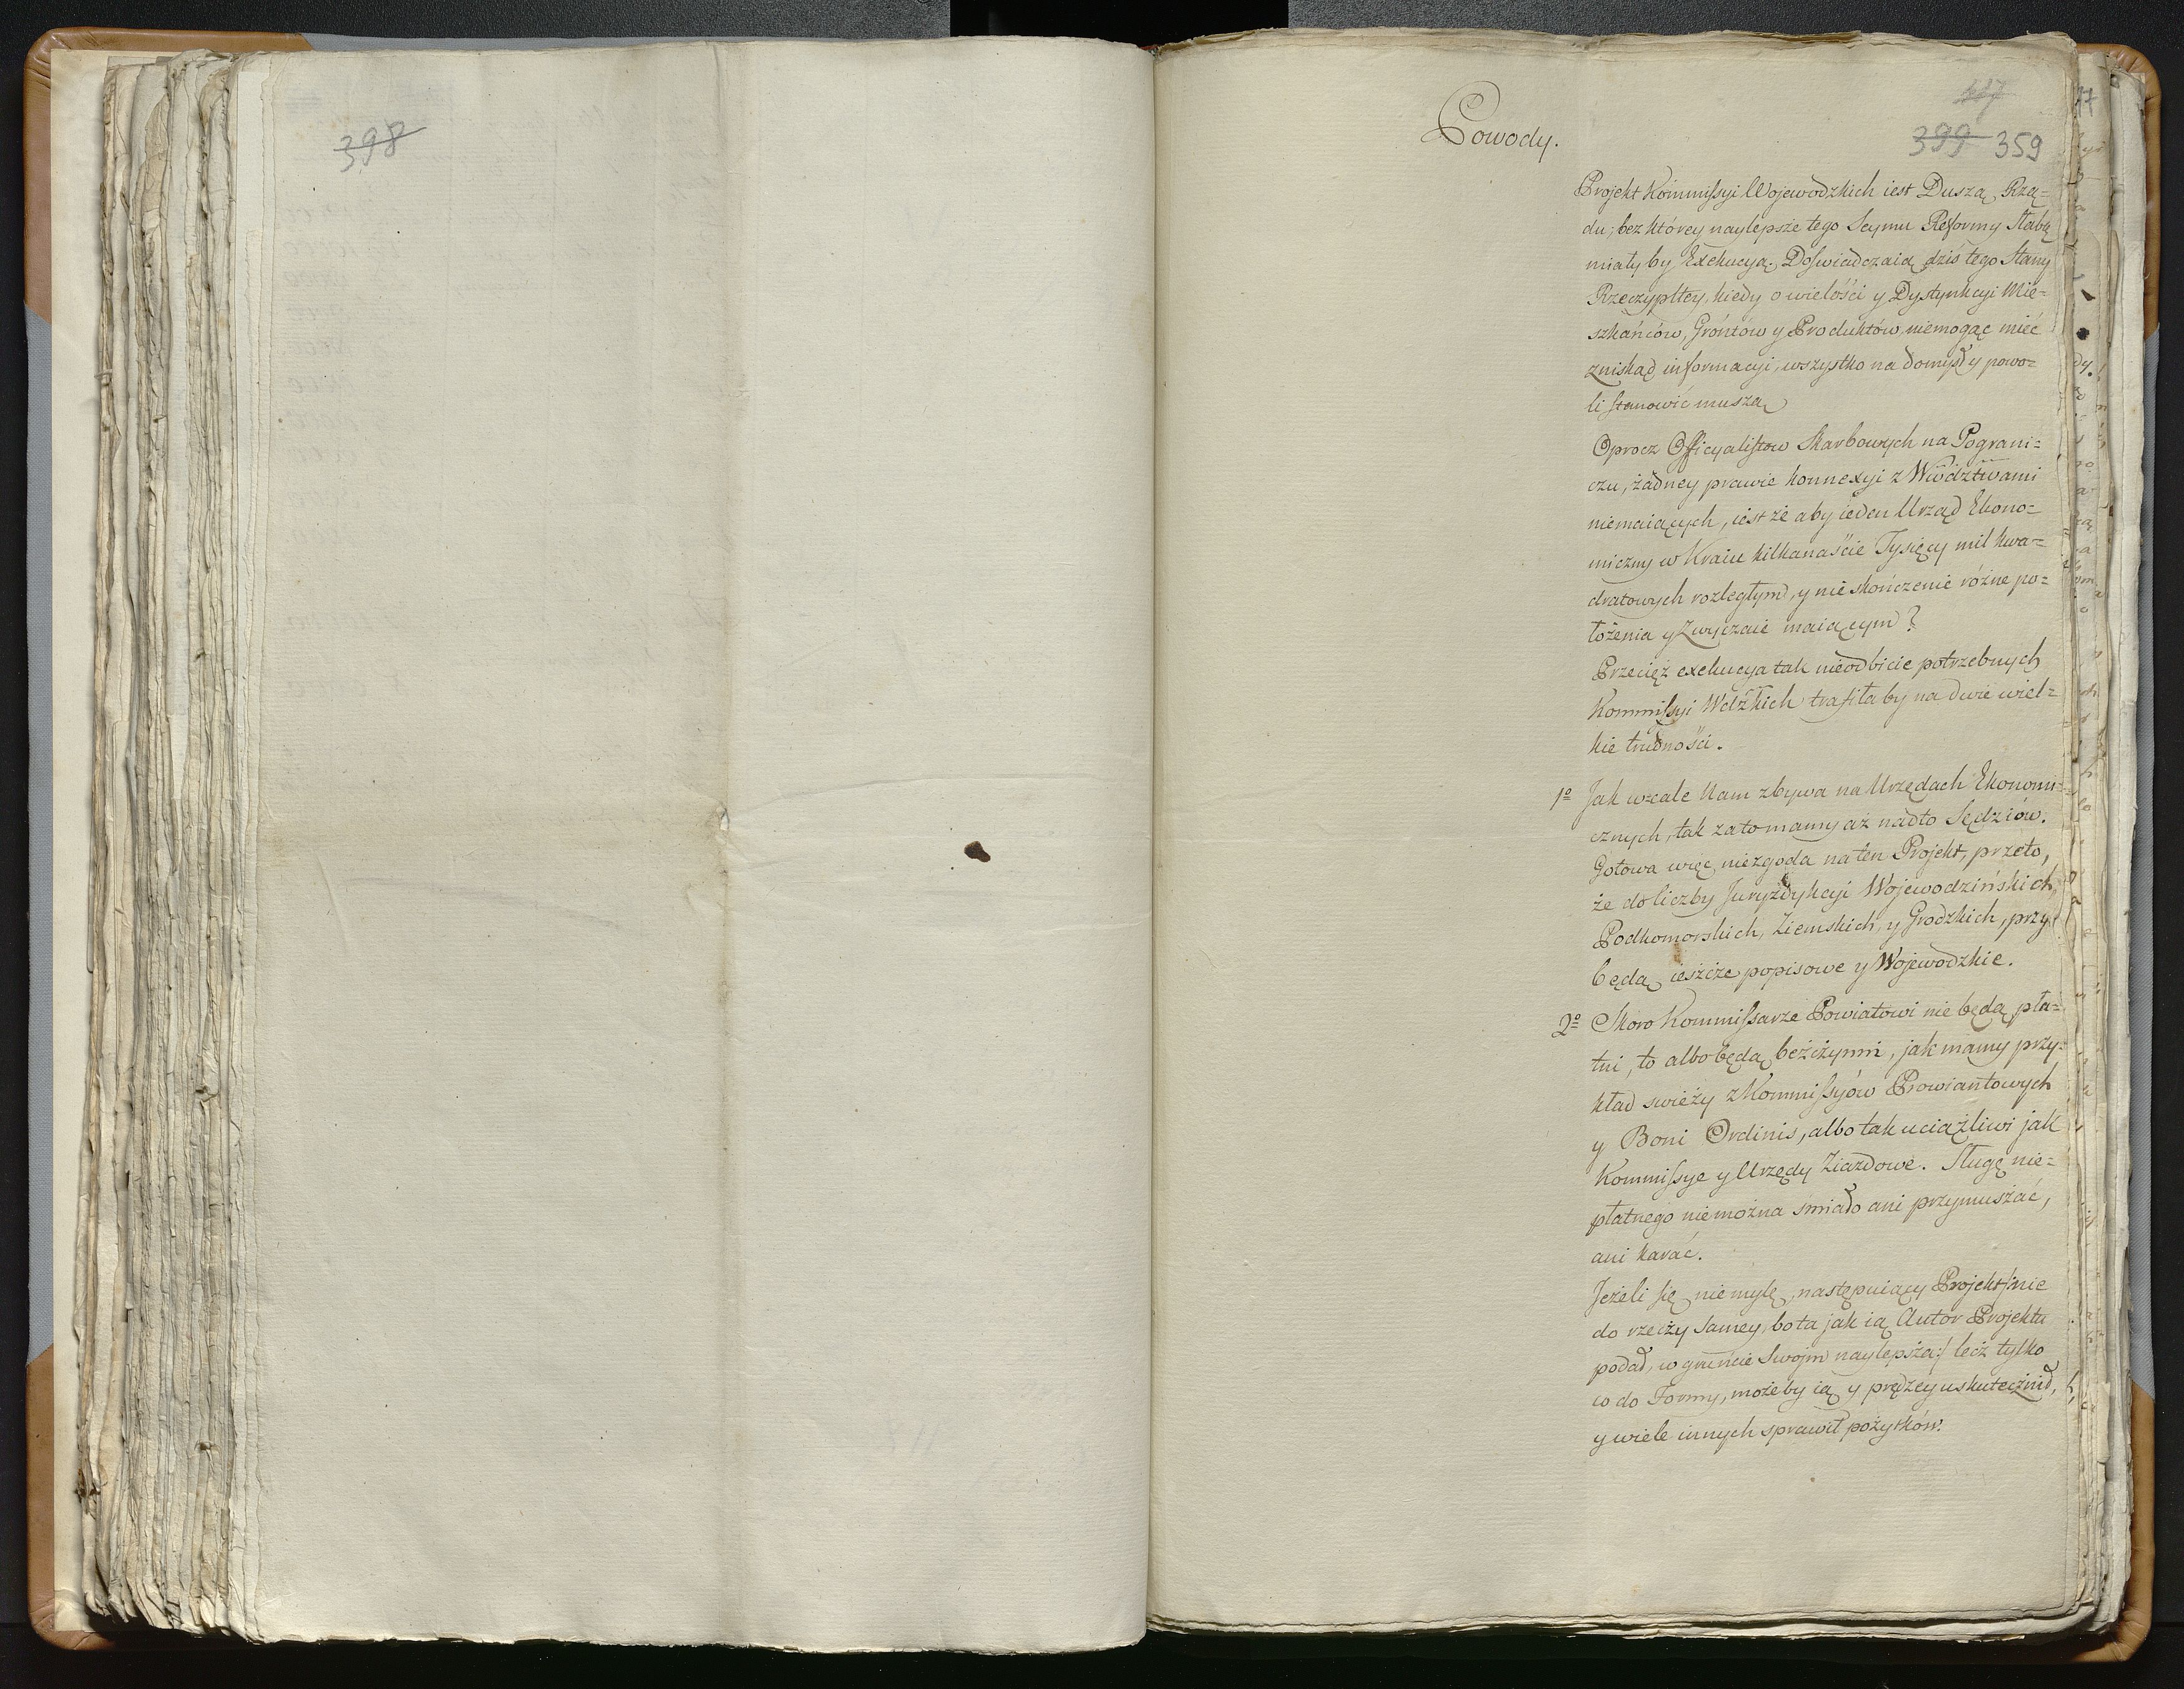 398
417
399 359
Powody.
Projekt Kommissyi Wojewodzkich iest Duszą Rzą=
du; bez ktόrey naylepsze tego Seymu Reformy słabą
miały by Exekucyą. Doswiadczaią dziś tego Stany
Rzeczypltey, kiedy o wielości y Dystynkcyi Mie=
szkańców, Gróntów y Produktów niemogąc mieć
zniskąd informacyi, wszystko na domysł y powo=
li stanowić muszą
Oprocz Officyalistow Skarbowych na Pograni=
czu, żadney prawie konnexyi z Wwództwami
niemaiących, iest że aby ieden Urząd Ekono=
miczny w Kraiu kilkanaście Tysięcy mil kwa=
dratowych rozległym, y nieskończenie różne po=
łożenia y Zwyczaie maiącym?
Przecięż exekucya tak nieodbicie potrzebnych
Kommissyi Wdzkich trafiła by na dwie wiel=
kie trudności.
1º Jak wcale Nam zbywa na Urzędach Ekonomi=
cznych, tak zato mamy aż nadto Sędziów.
Gotowa więc niezgoda na ten Projekt, przeto,
że do liczby Juryzdykcyi Wojewodzińskich,
Podkomorskich, Ziemskich, y Grodzkich, przy
będą ieszcze popisowe y Wojewodzkie.
2º Skoro Kommissarze Powiatowi nie będą pła=
tni, to albo będą bezczynni, jak mamy przy=
kład swieży z Kommissyów Prowiantowych
y Boni Ordinis, albo tak uciążliwi jak
Kommissye y Urzędy Ziazdowe. Sługę nie=
płatnego niemożna śmiało ani przymuszać,
ani karać.
Jeżeli się niemylę, następuiący Projekt /:nie
do rzeczy samey, bo ta jak ią Autor Projektu
podał, w gruncie swojm naylepsza:/ lecz tylko
co do Formy, możeby ią y prędzey uskutecznił,
y wiele innych sprawił pożytków.